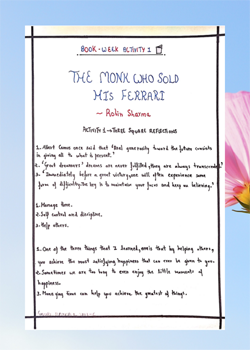 BOOK-WEEK ACTIVITY 1
THE MONK WHO SOLD
HIS FERRARI
~ Robin Sharma
ACTIVITY 1 → THREE SQUARE REFLECTIONS
1. Albert Camus once said that "Real generosity toward the future consists
in giving all to what is present."
2. "Great dreamers' dreams are never fulfilled, they are always transcended."
3. "Immediately before a great victory, one will often experience some
form of difficulty. The key is to maintain your focus and keep on believing."
1. Manage time.
2. Self control and discipline.
3. Help others.
1. One of the three things that I learned, one is that by helping others,
you achieve the most satisfying happiness that can ever be given to you.
2. Sometimes we are too busy to even enjoy the little moments of
happiness.
3. Managing time can help you achieve the greatest of things.